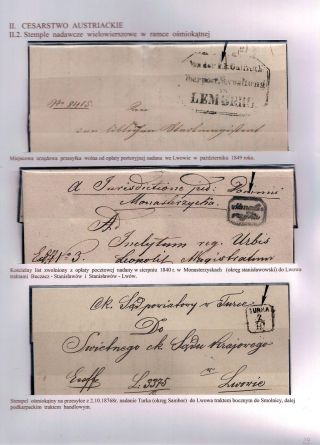 II. CESARSTWO AUSTRIACKIE
II.2. Stemple nadawcze wielowierszowe w ramce ośmiokątnej
Von der k.k. Galizisch
Oberpost Verwaltung
IN
LEMBERG
No 8415.
Miejscowa urzędowa przesyłka wolna od opłaty porterryjnej nadana we Lwowie w październiku 1849 roku.
A Jurisdictione
Monasterzyska.
Ad
Inclytum reg. Urbis
Leopolis Magistratum
Kościelny list zwolniony z opłaty pocztowej nadany w sierpniu 1840 r. w Monasterzyskach (okręg stanisławowski) do Lwowa
traktami Buczacz - Stanisławów i Stanisławów - Lwów.
Ck. Sąd powiatowy w Turce.
TURKA
2/10
Do
Świetnego ck. Sądu Krajowego
w
Exoff L. 3375 Lwowie
Stempel ośmiokątny na przesyłce z 2.10.1876r. nadanie Turka (okręg Sambor) do Lwowa traktem bocznym do Smolnicy, dalej
podkarpackim traktem handlowym.